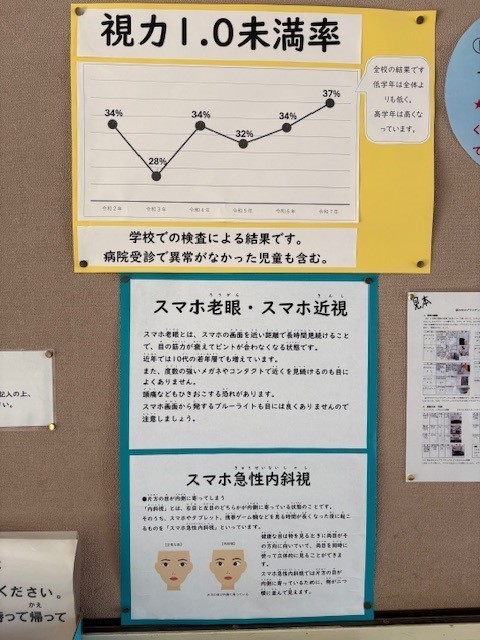 視力1.0未満率
全校の結果です
低学年は全体よ
りも低く。
高学年は高くな
っています。
34%
28%
34%
32%
34%
37%
令和2年
令和3年
令和4年
令和5年
令和6年
令和7年
学校での検査による結果です。
病院受診で異常がなかった児童も含む。
スマホ老眼・スマホ近視
スマホ老眼とは、スマホの画面を近い距離で長時間見続けること
で、目の筋力が衰えてピントが合わなくなる状態です。
近年では10代の若年層でも増えています。
また、度数の強いメガネやコンタクトで近くを見続けるのも目に
よくありません。
頭痛などもひきおこする恐れがあります。
スマホ画面から発するブルーライトも目には良くありませんので
注意しましょう。
きゅうせいないしゃし
スマホ急性内斜視
●片方の目が内側に寄ってしまう
「内斜視」とは、右目と左目のどちらかが内側に寄っている状態のことです。
そのうち、スマホやタブレット、携帯ゲーム機などを見る時間が長くなった後に起こ
るものを「スマホ急性内斜視」といっています。
健康な目は物を見るときに両目がそ
の方向に向いていて、両目を同時に
使って立体的に見ることができま
す。
スマホ急性内斜視では片方の目が
内側に寄っているために、物が二つ
横に並んで見えます。
見本
記入の上、
さい。
ください。
かえ
持って帰って